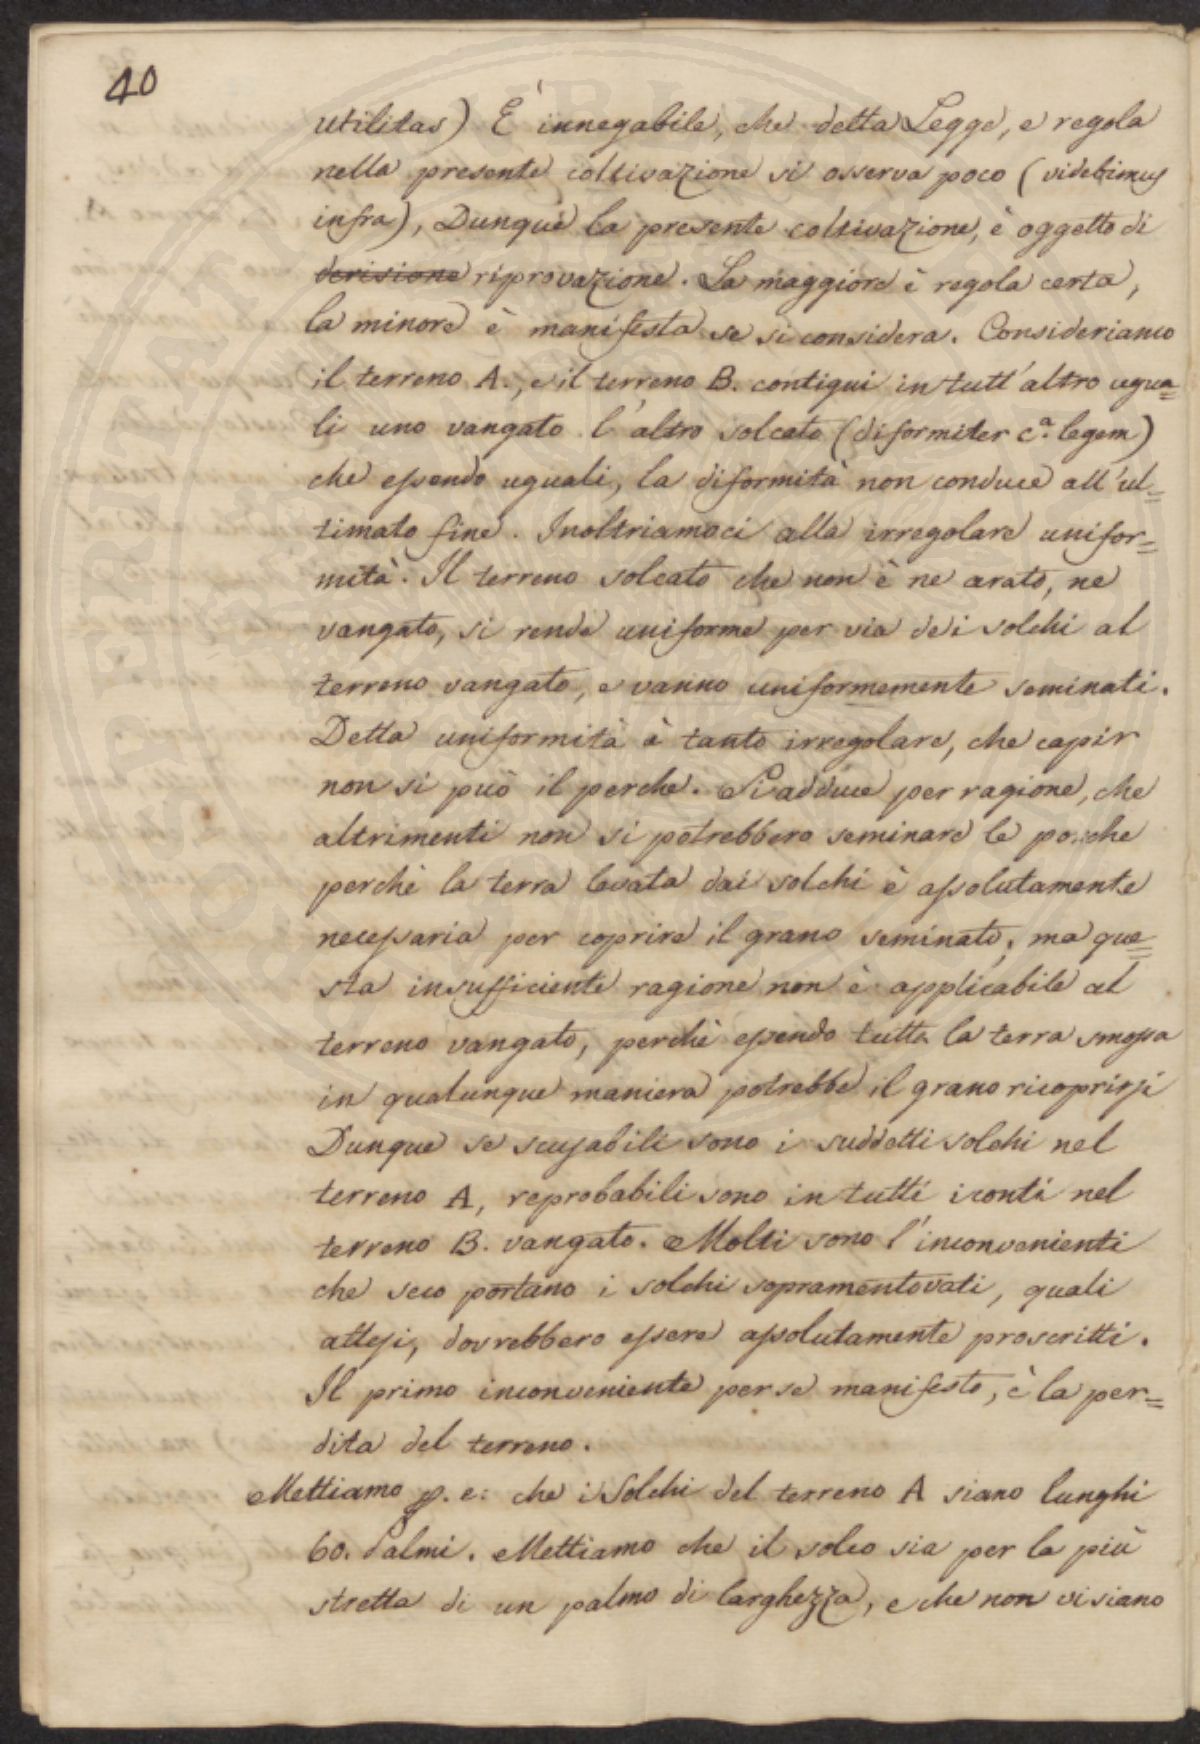 40
utilitas) E' innegabile, che detta Legge, e regola
nella presente coltivazione si osserva poco (videbimus
infra), Dunque la presente coltivazione, è oggetto di
derisione riprovazione. La maggiore è regola certa,
la minore è manifesta se si considera. Consideriamo
il terreno A., e il terreno B. contigui in tutt'altro ugua=
li uno vangato l'altro solcato (diformiter cª. legem)
che essendo uguali, la diformità non conduce all'ul=
timato fine. Inoltriamoci alla irregolare unifor=
mità. Il terreno solcato che non è ne arato, ne
vangato, si rende uniforme per via dei solchi al
terreno vangato, e vanno uniformemente seminati.
Detta uniformità è tanto irregolare, che capir
non si può il perche. Si adduce per ragione, che
altrimenti non si potrebbero seminare le porche
perchè la terra levata dai solchi è assolutamente
necessaria per coprire il grano seminato, ma que=
sta insufficiente ragione non è applicabile al
terreno vangato, perchè essendo tutta la terra smossa
in qualunque maniera potrebbe il grano ricoprirsi
Dunque se scusabili sono i suddetti solchi nel
terreno A, reprobabili sono in tutti i conti nel
terreno B. vangato. Molti sono l'inconvenienti
che seco portano i solchi sopramentovati, quali
attesi, dovrebbero essere assolutamente proscritti.
Il primo inconveniente per se manifesto, è la per=
dita del terreno.
Mettiamo p. e: che i Solchi del terreno A siano lunghi
60. Palmi. Mettiamo che il solco sia per la più
stretta di un palmo di larghezza, e che non vi siano